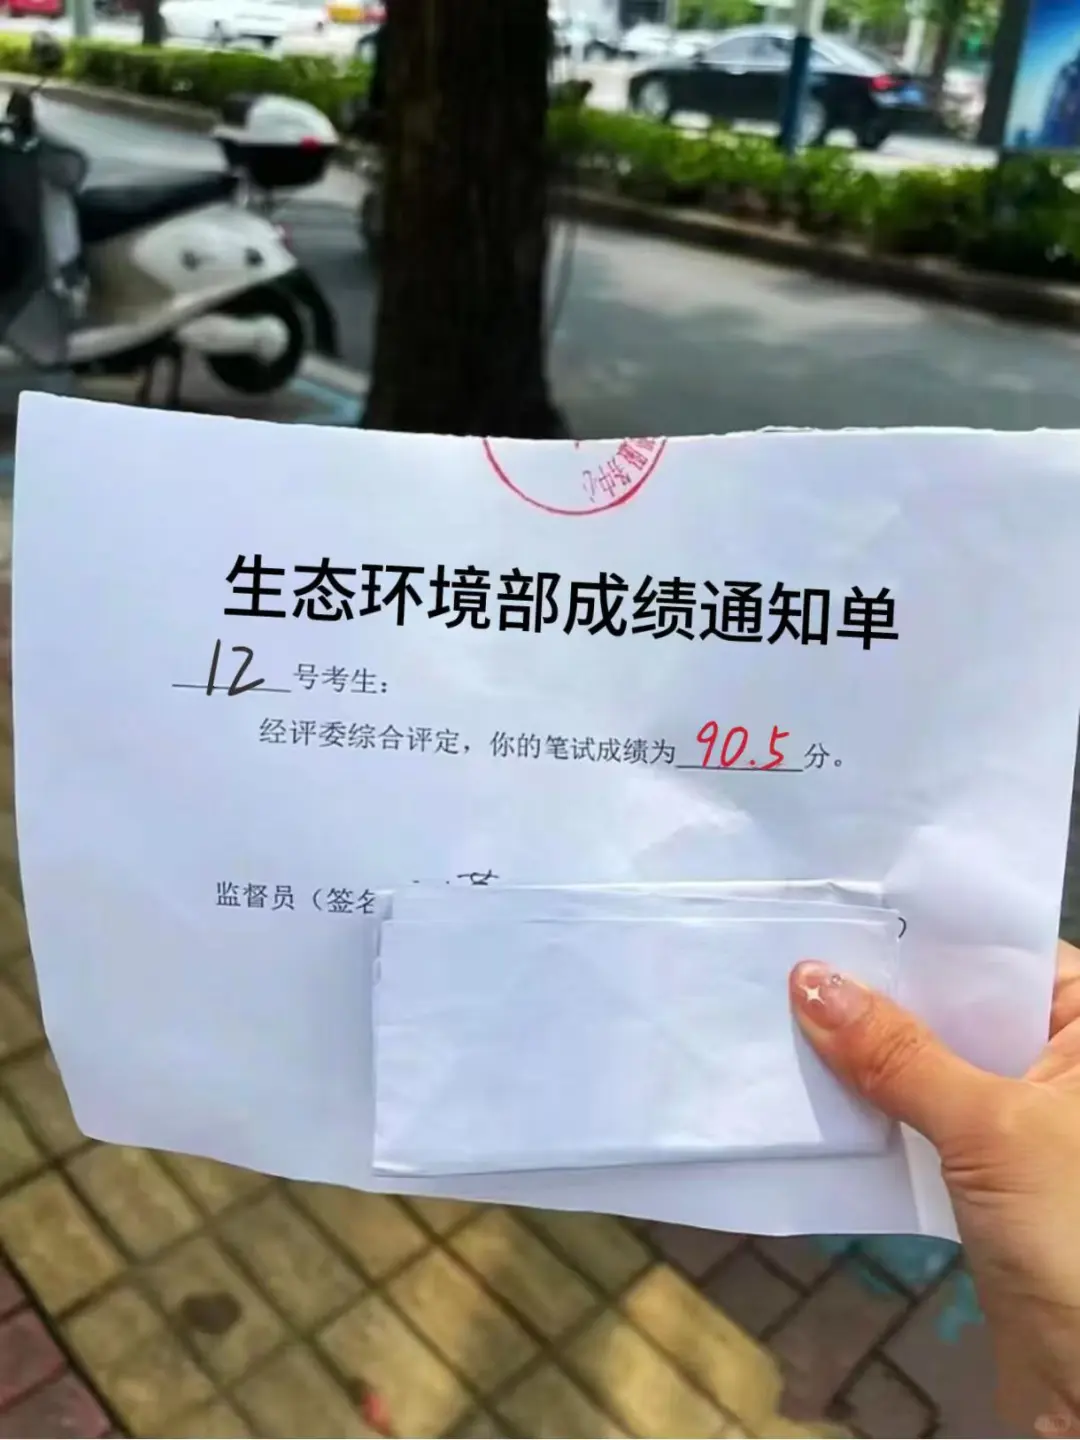 服务中心
生态环境部成绩通知单
12号考生：
经评委综合评定，你的笔试成绩为90.5分。
监督员（签名